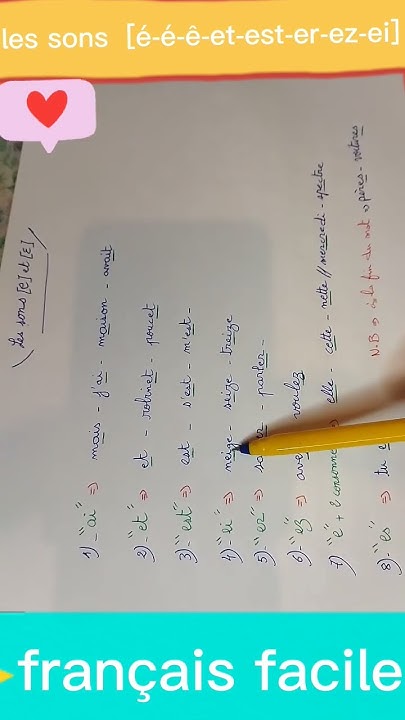 les sons [é-é-ê-et-est-er-ez-ei]
Les sons [e] et [ɛ]
1)- "ai" => mais - j'ai - maison - avait
2)- "et" => et - robinet - poucet
3)- "est" => est - s'est - m'est -
4)- "ei" => neige - seize - treize
5)- "er" => - parler -
6)- "ez" => avez voulez
7) "e" + 2 consonnes => elle - cette - nette // mercredi - spectre
8)- "es" => tu
N.B => à la fin du mot => pères - voitures
français facile